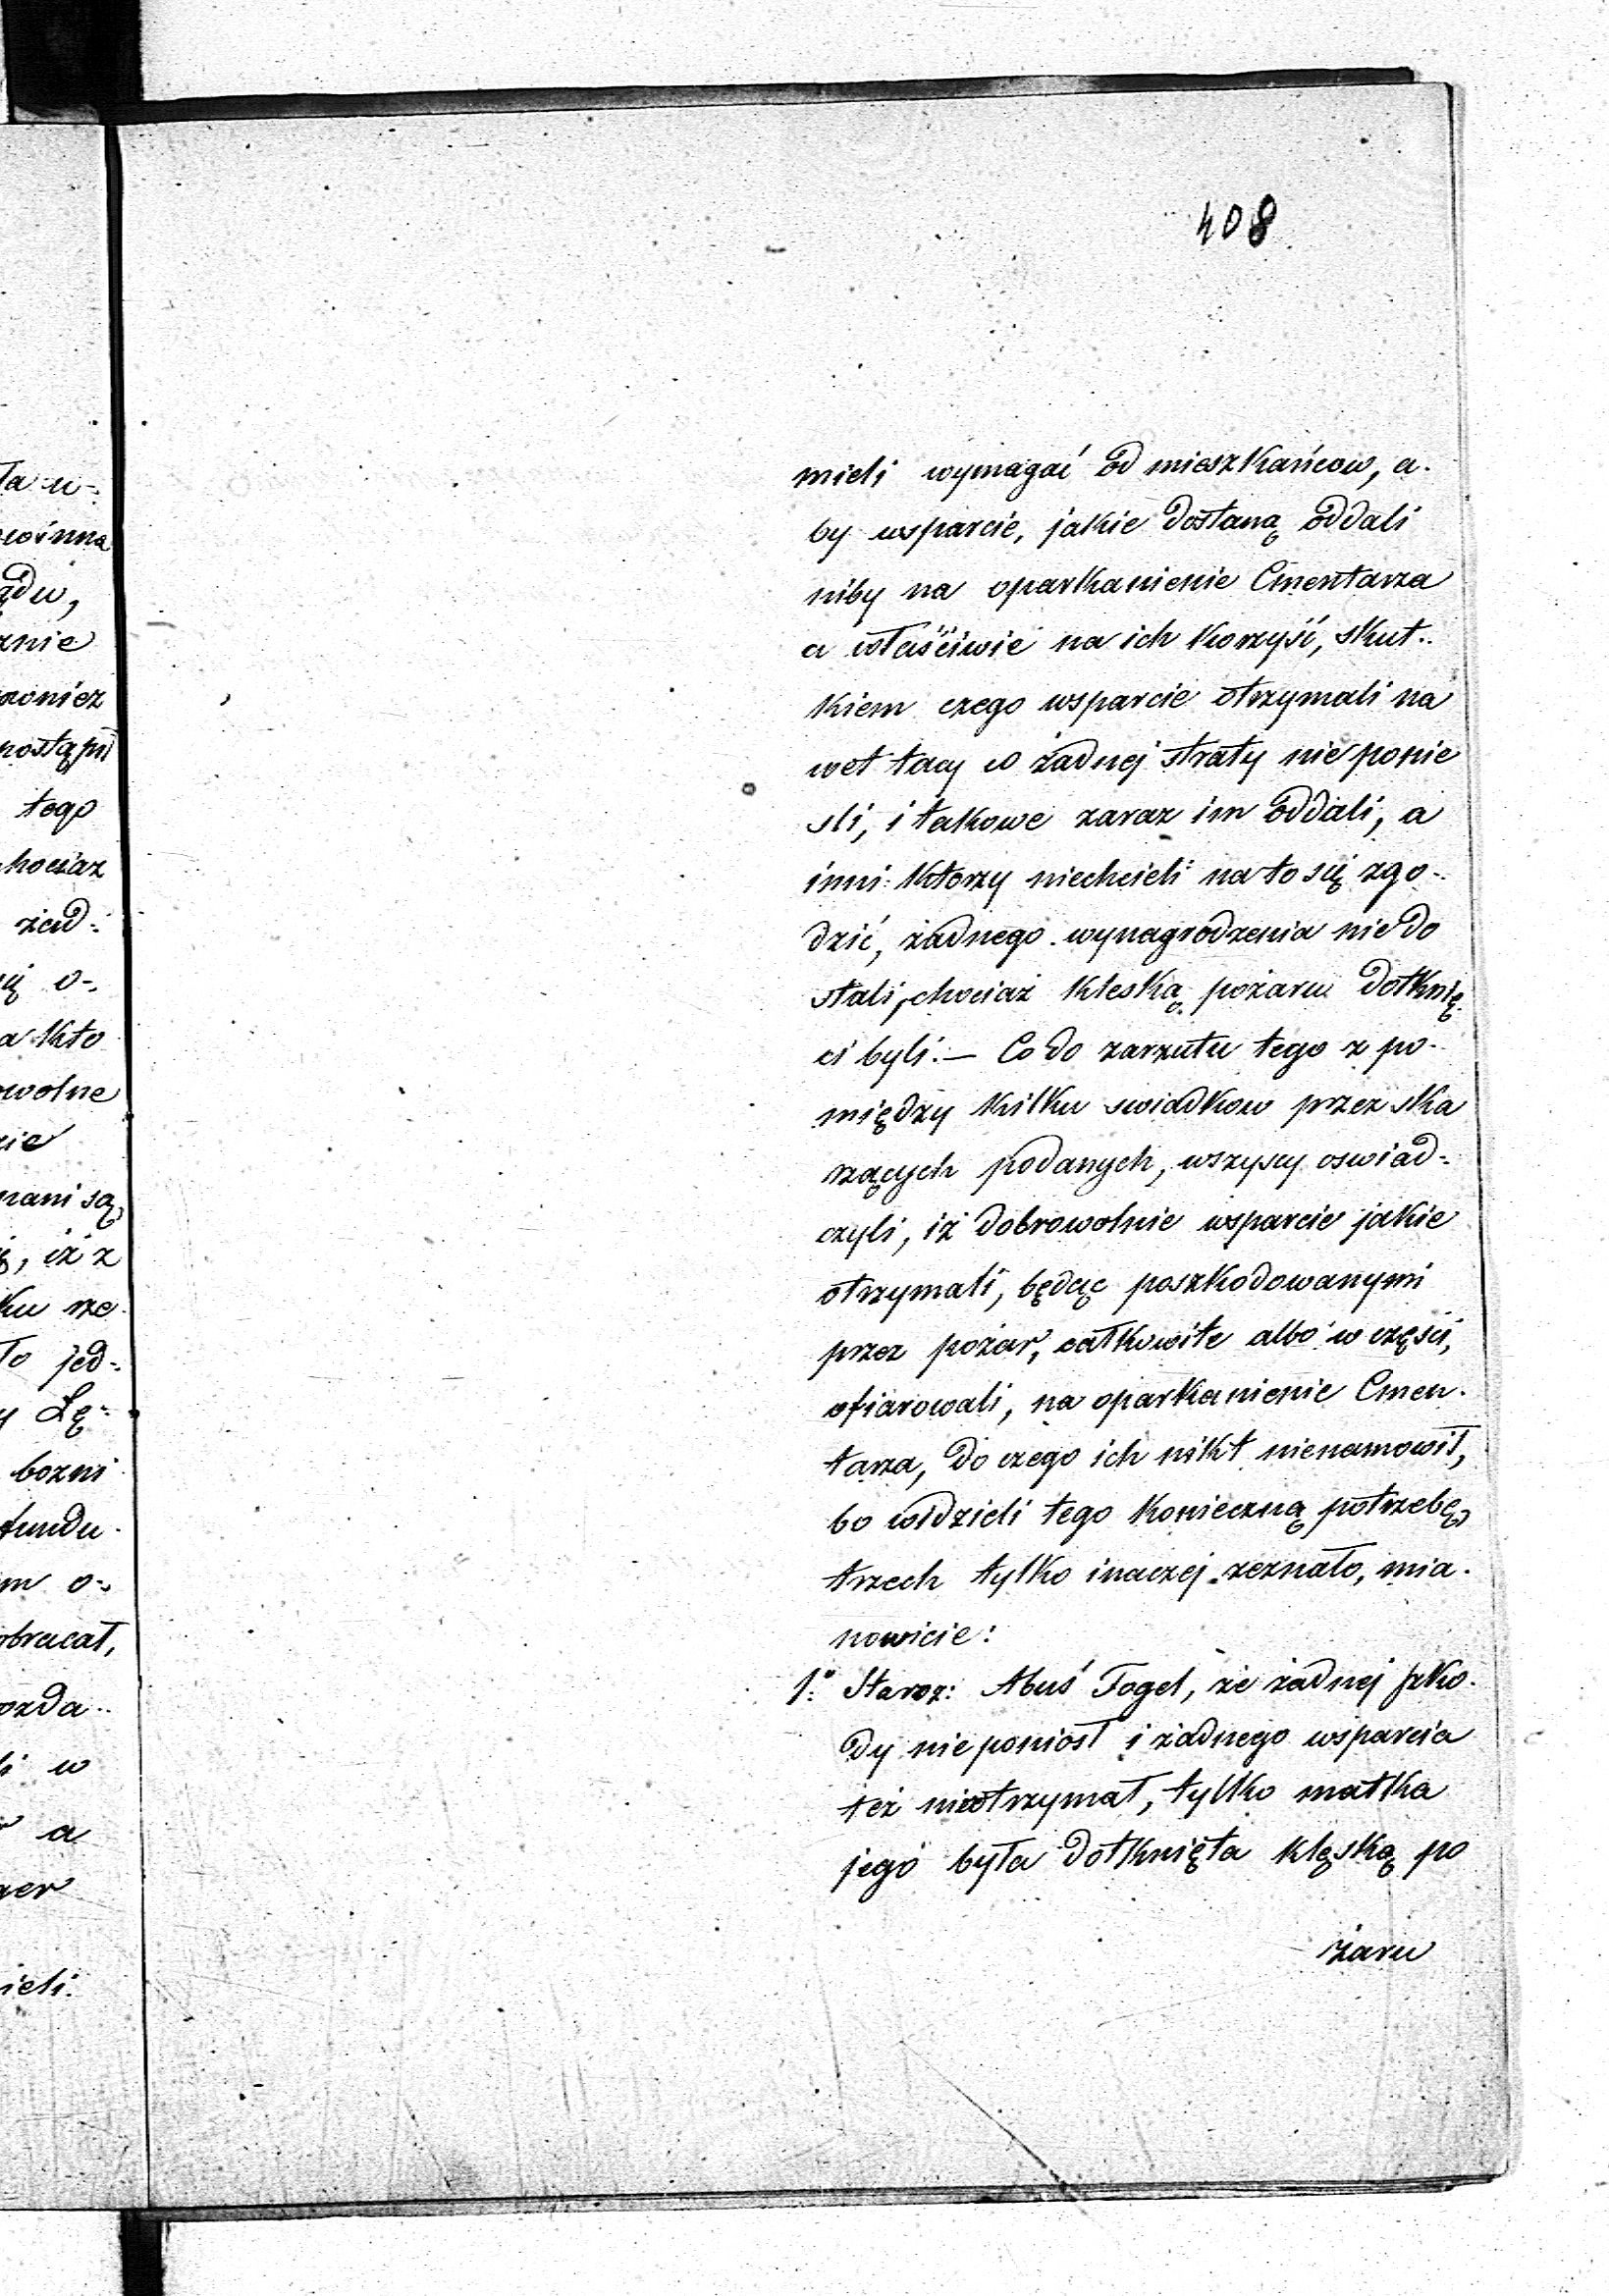 408
mieli wymagać od mieszkańcow, a-
by wsparcie, jakie dostaną oddali
niby na oparkanienie Cmentarza
a właściwie na ich korzyść, skut-
kiem czego wsparcie otrzymali na
wet tacy co żadnej straty nie ponie
sli, i takowe zaraz im oddali, a
inni ktorzy niechcieli na to się zgo-
dzić, żadnego wynagrodzenia nie do
stali, chociaż kleską pożaru dotknię
ci byli. — Co do zarzutu tego z po-
między kilku swiadkow przez ska
rzących podanych, wszyscy oswiad-
czyli, iż dobrowolnie wsparcie jakie
otrzymali, będąc poszkodowanymi
przez pożar, całkowite albo w części,
ofiarowali, na oparkanienie Cmen-
tarza, do czego ich nikt nienamowił,
bo widzieli tego konieczną potrzebę,
trzech tylko inaczej zeznało, mia-
nowicie:
1.° Staroz: Abuś Fogel, że żadnej szko-
dy nie poniosł i żadnego wsparcia
też nieotrzymał, tylko matka
jego była dotknięta klęską po
żaru